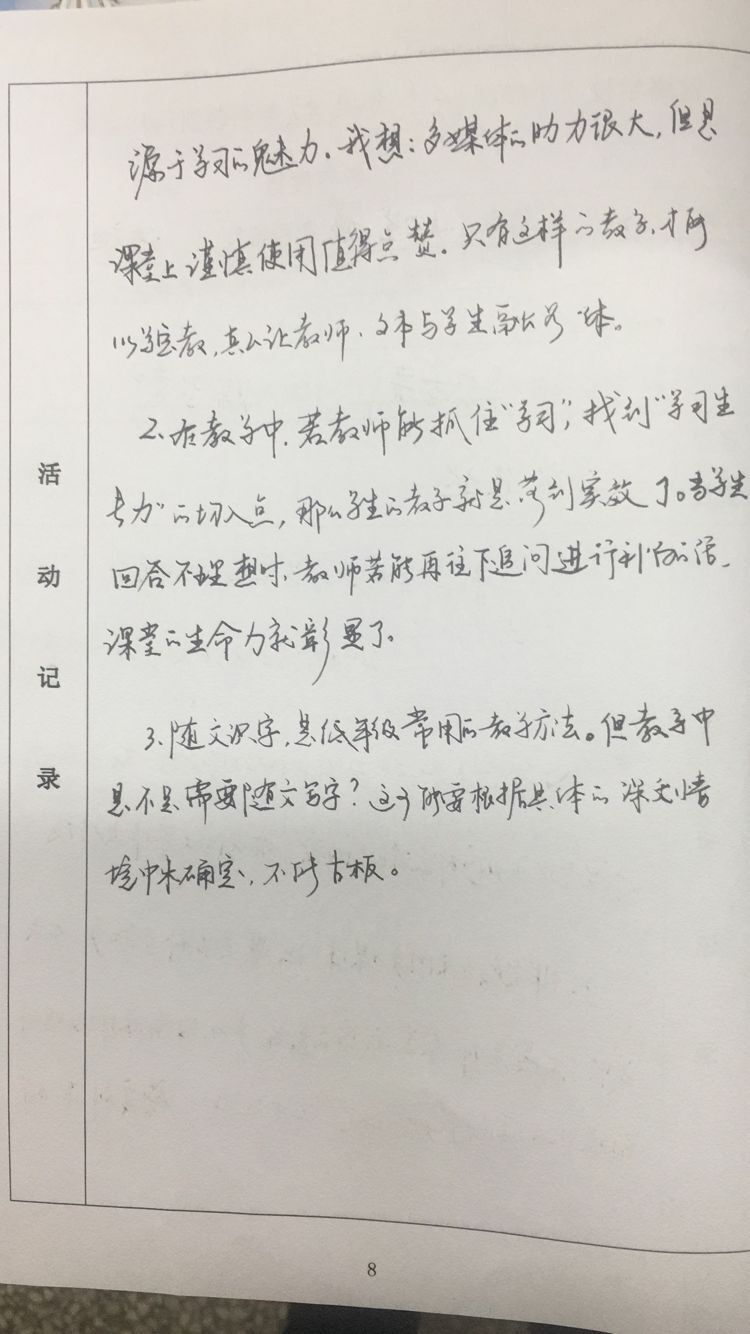 活动记录
源于学习的魅力。我想：多媒体的助力很大，但是
课堂上谨慎使用值得点赞。只有这样的教学，才能
以学定教，真正让教师、文本与学生融为一体。
2、在教学中，若教师能抓住“学习”，找到“学习生
长力”的切入点，那么学生的教学就是落到实效了。当学生
回答不理想时，教师若能再往下追问进行的话，
课堂的生命力就彰显了。
3、随文识字，是低年级常用的教学方法。但教学中
是不是需要随文写字？这个就要根据具体的课文情
境中来确定，不能古板。
8